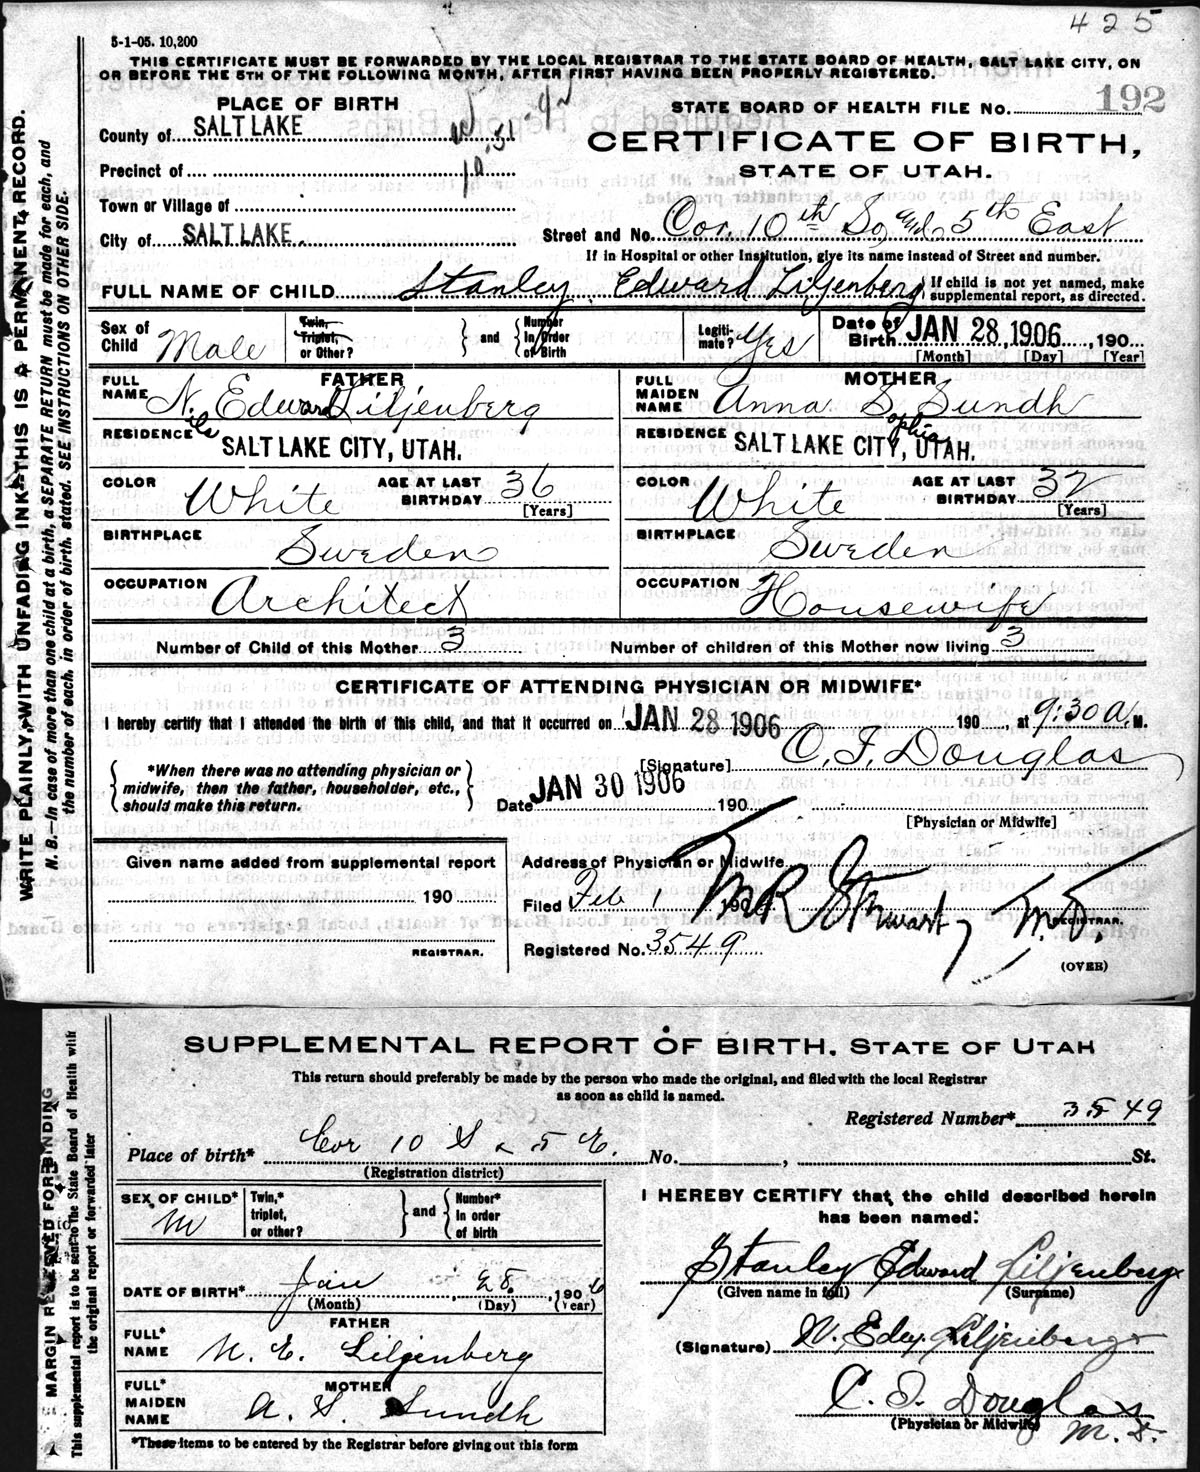 425
5-1-05. 10,200
THIS CERTIFICATE MUST BE FORWARDED BY THE LOCAL REGISTRAR TO THE STATE BOARD OF HEALTH, SALT LAKE CITY, ON
OR BEFORE THE 5TH OF THE FOLLOWING MONTH, AFTER FIRST HAVING BEEN PROPERLY REGISTERED.
WRITE PLAINLY, WITH UNFADING INK—THIS IS A PERMANENT RECORD.
N. B.—In case of more than one child at a birth, a SEPARATE RETURN must be made for each, and
the number of each, in order of birth, stated. SEE INSTRUCTIONS ON OTHER SIDE.
PLACE OF BIRTH
STATE BOARD OF HEALTH FILE No. 192
County of SALT LAKE
CERTIFICATE OF BIRTH,
Precinct of
STATE OF UTAH.
Town or Village of
City of SALT LAKE.
Street and No. Cor. 10th So. and 5th East
If in Hospital or other Institution, give its name instead of Street and number.
FULL NAME OF CHILD Stanley Edward Liljenberg
If child is not yet named, make
supplemental report, as directed.
Sex of Child Male
Twin, Triplet, or Other?
and
Number in Order of Birth
Legitimate? Yes
Date of Birth JAN 28 1906, 190
[Month] [Day] [Year]
FATHER
FULL NAME Nils Edward Liljenberg
MOTHER
FULL MAIDEN NAME Anna Sophia Sundh
RESIDENCE SALT LAKE CITY, UTAH.
RESIDENCE SALT LAKE CITY, UTAH.
COLOR White
AGE AT LAST BIRTHDAY 36
[Years]
COLOR White
AGE AT LAST BIRTHDAY 32
[Years]
BIRTHPLACE Sweden
BIRTHPLACE Sweden
OCCUPATION Architect
OCCUPATION Housewife
Number of Child of this Mother 3
Number of children of this Mother now living 3
CERTIFICATE OF ATTENDING PHYSICIAN OR MIDWIFE*
I hereby certify that I attended the birth of this child, and that it occurred on JAN 28 1906 190, at 9:30 a. M.
*When there was no attending physician or
midwife, then the father, householder, etc.,
should make this return.
[Signature] C. F. Douglas
Date JAN 30 1906 190
[Physician or Midwife]
Given name added from supplemental report
190
REGISTRAR.
Address of Physician or Midwife
Filed Feb 1 190
M R Stewart, M.D.
REGISTRAR.
Registered No. 3549
(OVER)
MARGIN RESERVED FOR BINDING
This supplemental report is to be sent to the State Board of Health with
the original report or forwarded later
SUPPLEMENTAL REPORT OF BIRTH. STATE OF UTAH
This return should preferably be made by the person who made the original, and filed with the local Registrar
as soon as child is named.
Registered Number* 3549
Place of birth* Cor 10 S & 5 E. No. , St.
(Registration district)
SEX OF CHILD* M
Twin,* triplet, or other?
and
Number* in order of birth
I HEREBY CERTIFY that the child described herein
has been named:
Stanley Edward Liljenberg
(Given name in full) (Surname)
DATE OF BIRTH* Jan 28, 1906
(Month) (Day) (Year)
FATHER
FULL* NAME N. E. Liljenberg
(Signature) N. Edw. Liljenberg
MOTHER
FULL* MAIDEN NAME A. S. Sundh
C. F. Douglas
(Physician or Midwife) M. D.
*These items to be entered by the Registrar before giving out this form